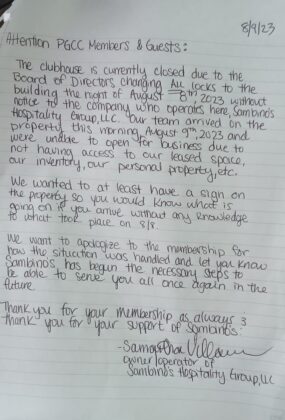 8/9/23
Attention PGCC Members & Guests:
The clubhouse is currently closed due to the
Board of Directors changing ALL locks to the
building the night of August 8th, 2023 without
notice to the company who operates here, Sambino's
Hospitality Group, LLC. Our team arrived on the
property this morning, August 9th, 2023 and
were unable to open for business due to
not having access to our leased space,
our inventory, our personal property, etc.
We wanted to at least have a sign on
the property so you would know what is
going on if you arrive without any knowledge
to what took place on 8/8.
We want to apologize to the membership for
how the situation was handled and let you know
Sambino's has begun the necessary steps to
be able to serve you all once again in the
future.
Thank you for your membership as always &
thank you for your support of Sambino's.
-Samantha
owner/operator of
Sambino's Hospitality Group, LLC